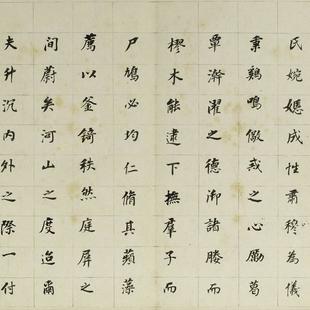 氏婉嫕成性肅穆為儀
秉鷄鳴儆戒之心勵葛
覃澣濯之德御諸媵而
樛木能逮下撫羣子而
尸鳩必均仁脩其蘋藻
薦以釜錡秩然庭屏之
間蔚矣河山之度迨爾
夫升沉内外之際一付